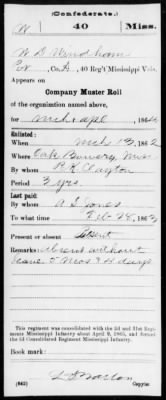 (Confederate.)
W 40 Miss.
W D Windham
Co. A, 40 Reg't Mississippi Vols.
Appears on
Company Muster Roll
of the organization named above,
for Mch & Apl, 1864
Enlisted:
When Mch 13, 1862
Where Oak Bowery, Miss
By whom R. K. Clayton
Period 3 yrs.
Last paid:
By whom A. S. Jones
To what time Feb 28, 1863
Present or absent Absent
Remarks: Absent without
leave 5 Mos & 4 days
This regiment was consolidated with the 3d and 31st Regiments
Mississippi Infantry about April 9, 1865, and formed
the 3d Consolidated Regiment Mississippi Infantry.
Book mark:
(642)
Copyist.